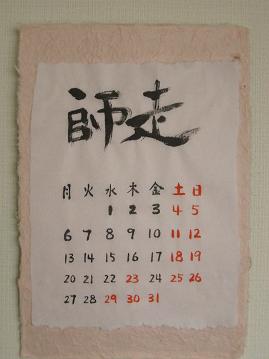 師走
月 火 水 木 金 土 日
1 2 3 4 5
6 7 8 9 10 11 12
13 14 15 16 17 18 19
20 21 22 23 24 25 26
27 28 29 30 31